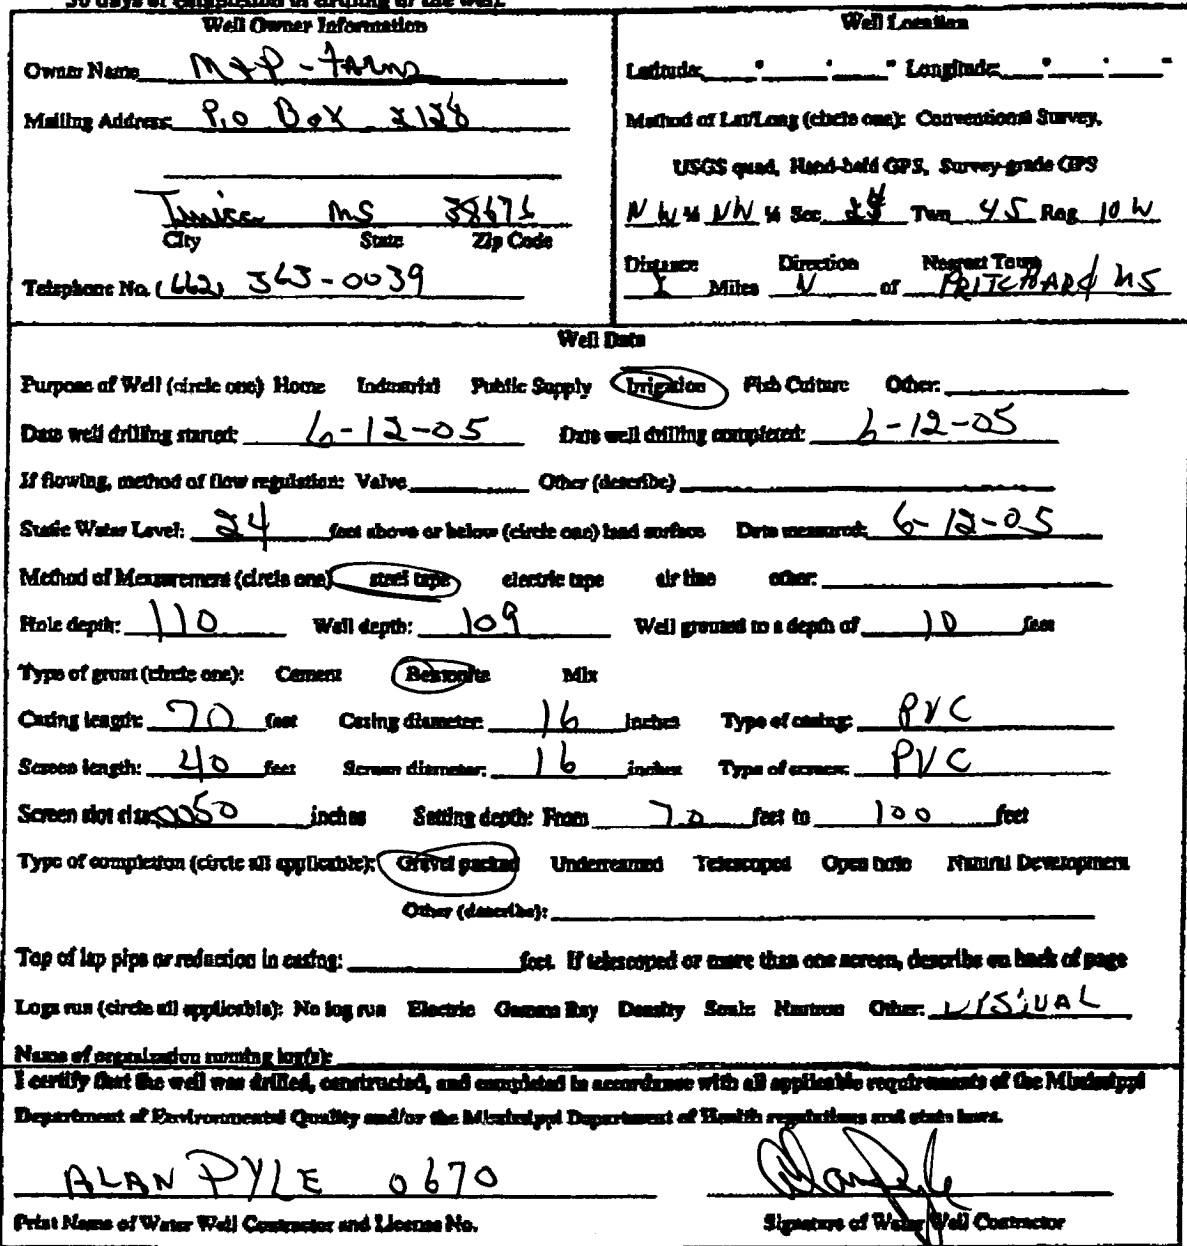 30 days of completion of drilling of the well.
Well Owner Information
Owner Name M&P-Farms
Mailing Address: P.O Box 2128
Tunica MS 38676
City State Zip Code
Telephone No. (662) 363-0039
Well Location
Latitude: ° ' " Longitude: ° ' "
Method of Lat/Long (circle one): Conventional Survey,
USGS quad, Hand-held GPS, Survey-grade GPS
NW ¼ NW ¼ Sec Twn 4S Rng 10W
Distance Direction Nearest Town
Miles N of PRITCHARD MS
Well Data
Purpose of Well (circle one) Home Industrial Public Supply Irrigation Fish Culture Other:
Date well drilling started: 6-12-05 Date well drilling completed: 6-12-05
If flowing, method of flow regulation: Valve Other (describe)
Static Water Level: 24 feet above or below (circle one) land surface Date measured: 6-12-05
Method of Measurement (circle one) steel tape electric tape air line other:
Hole depth: 110 Well depth: 109 Well grouted to a depth of 10 feet
Type of grout (circle one): Cement Bentonite Mix
Casing length: 70 feet Casing diameter: 16 inches Type of casing: PVC
Screen length: 40 feet Screen diameter: 16 inches Type of screen: PVC
Screen slot size: 0050 inches Setting depth: From 70 feet to 100 feet
Type of completion (circle all applicable): Gravel packed Underreamed Telescoped Open hole Natural Development
Other (describe):
Top of lap pipe or reduction in casing: feet. If telescoped or more than one screen, describe on back of page
Logs run (circle all applicable): No log run Electric Gamma Ray Density Sonic Neutron Other: VISUAL
Name of organization running log(s):
I certify that the well was drilled, constructed, and completed in accordance with all applicable requirements of the Mississippi
Department of Environmental Quality and/or the Mississippi Department of Health regulations and state laws.
ALAN PYLE 0670
Alan Pyle
Print Name of Water Well Contractor and License No.
Signature of Water Well Contractor